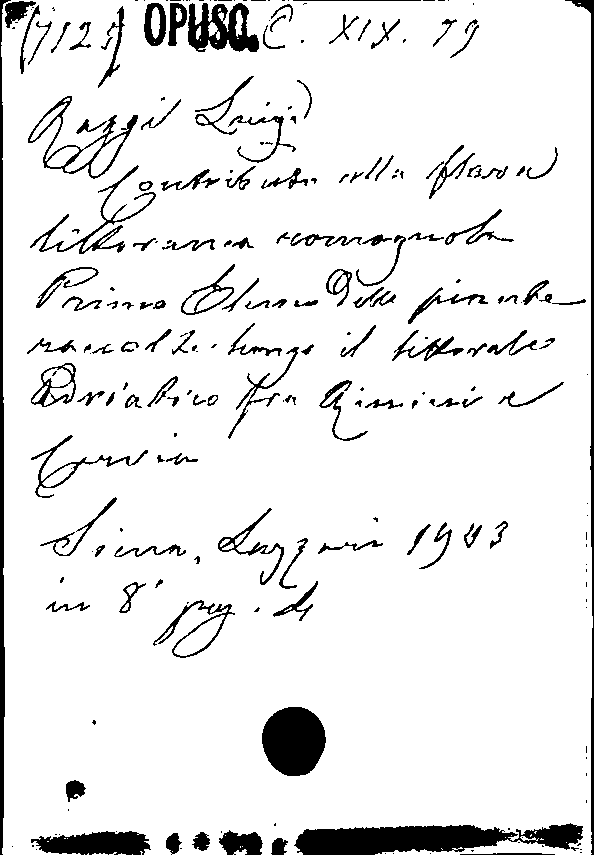 (7125) OPUSC. C. XIX. 79
Raggi Luigi
Contributo alla flora
littoranea romagnola
Primo Elenco delle piante
raccolte lungo il littorale
Adriatico fra Rimini e
Cervia
Siena, Lazzari 1903
in 8° pag. 4